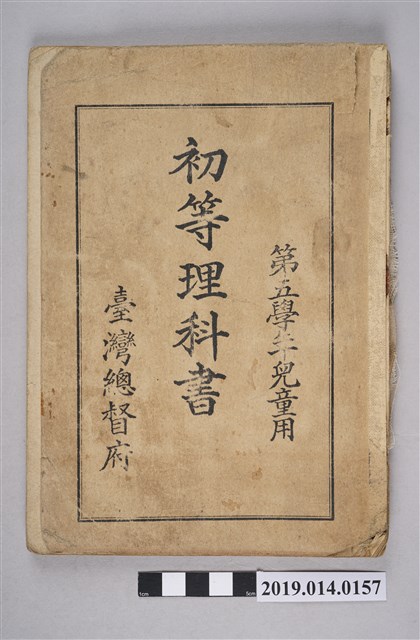 第五學年兒童用
初等理科書
臺灣總督府
1cm
5cm
2019.014.0157